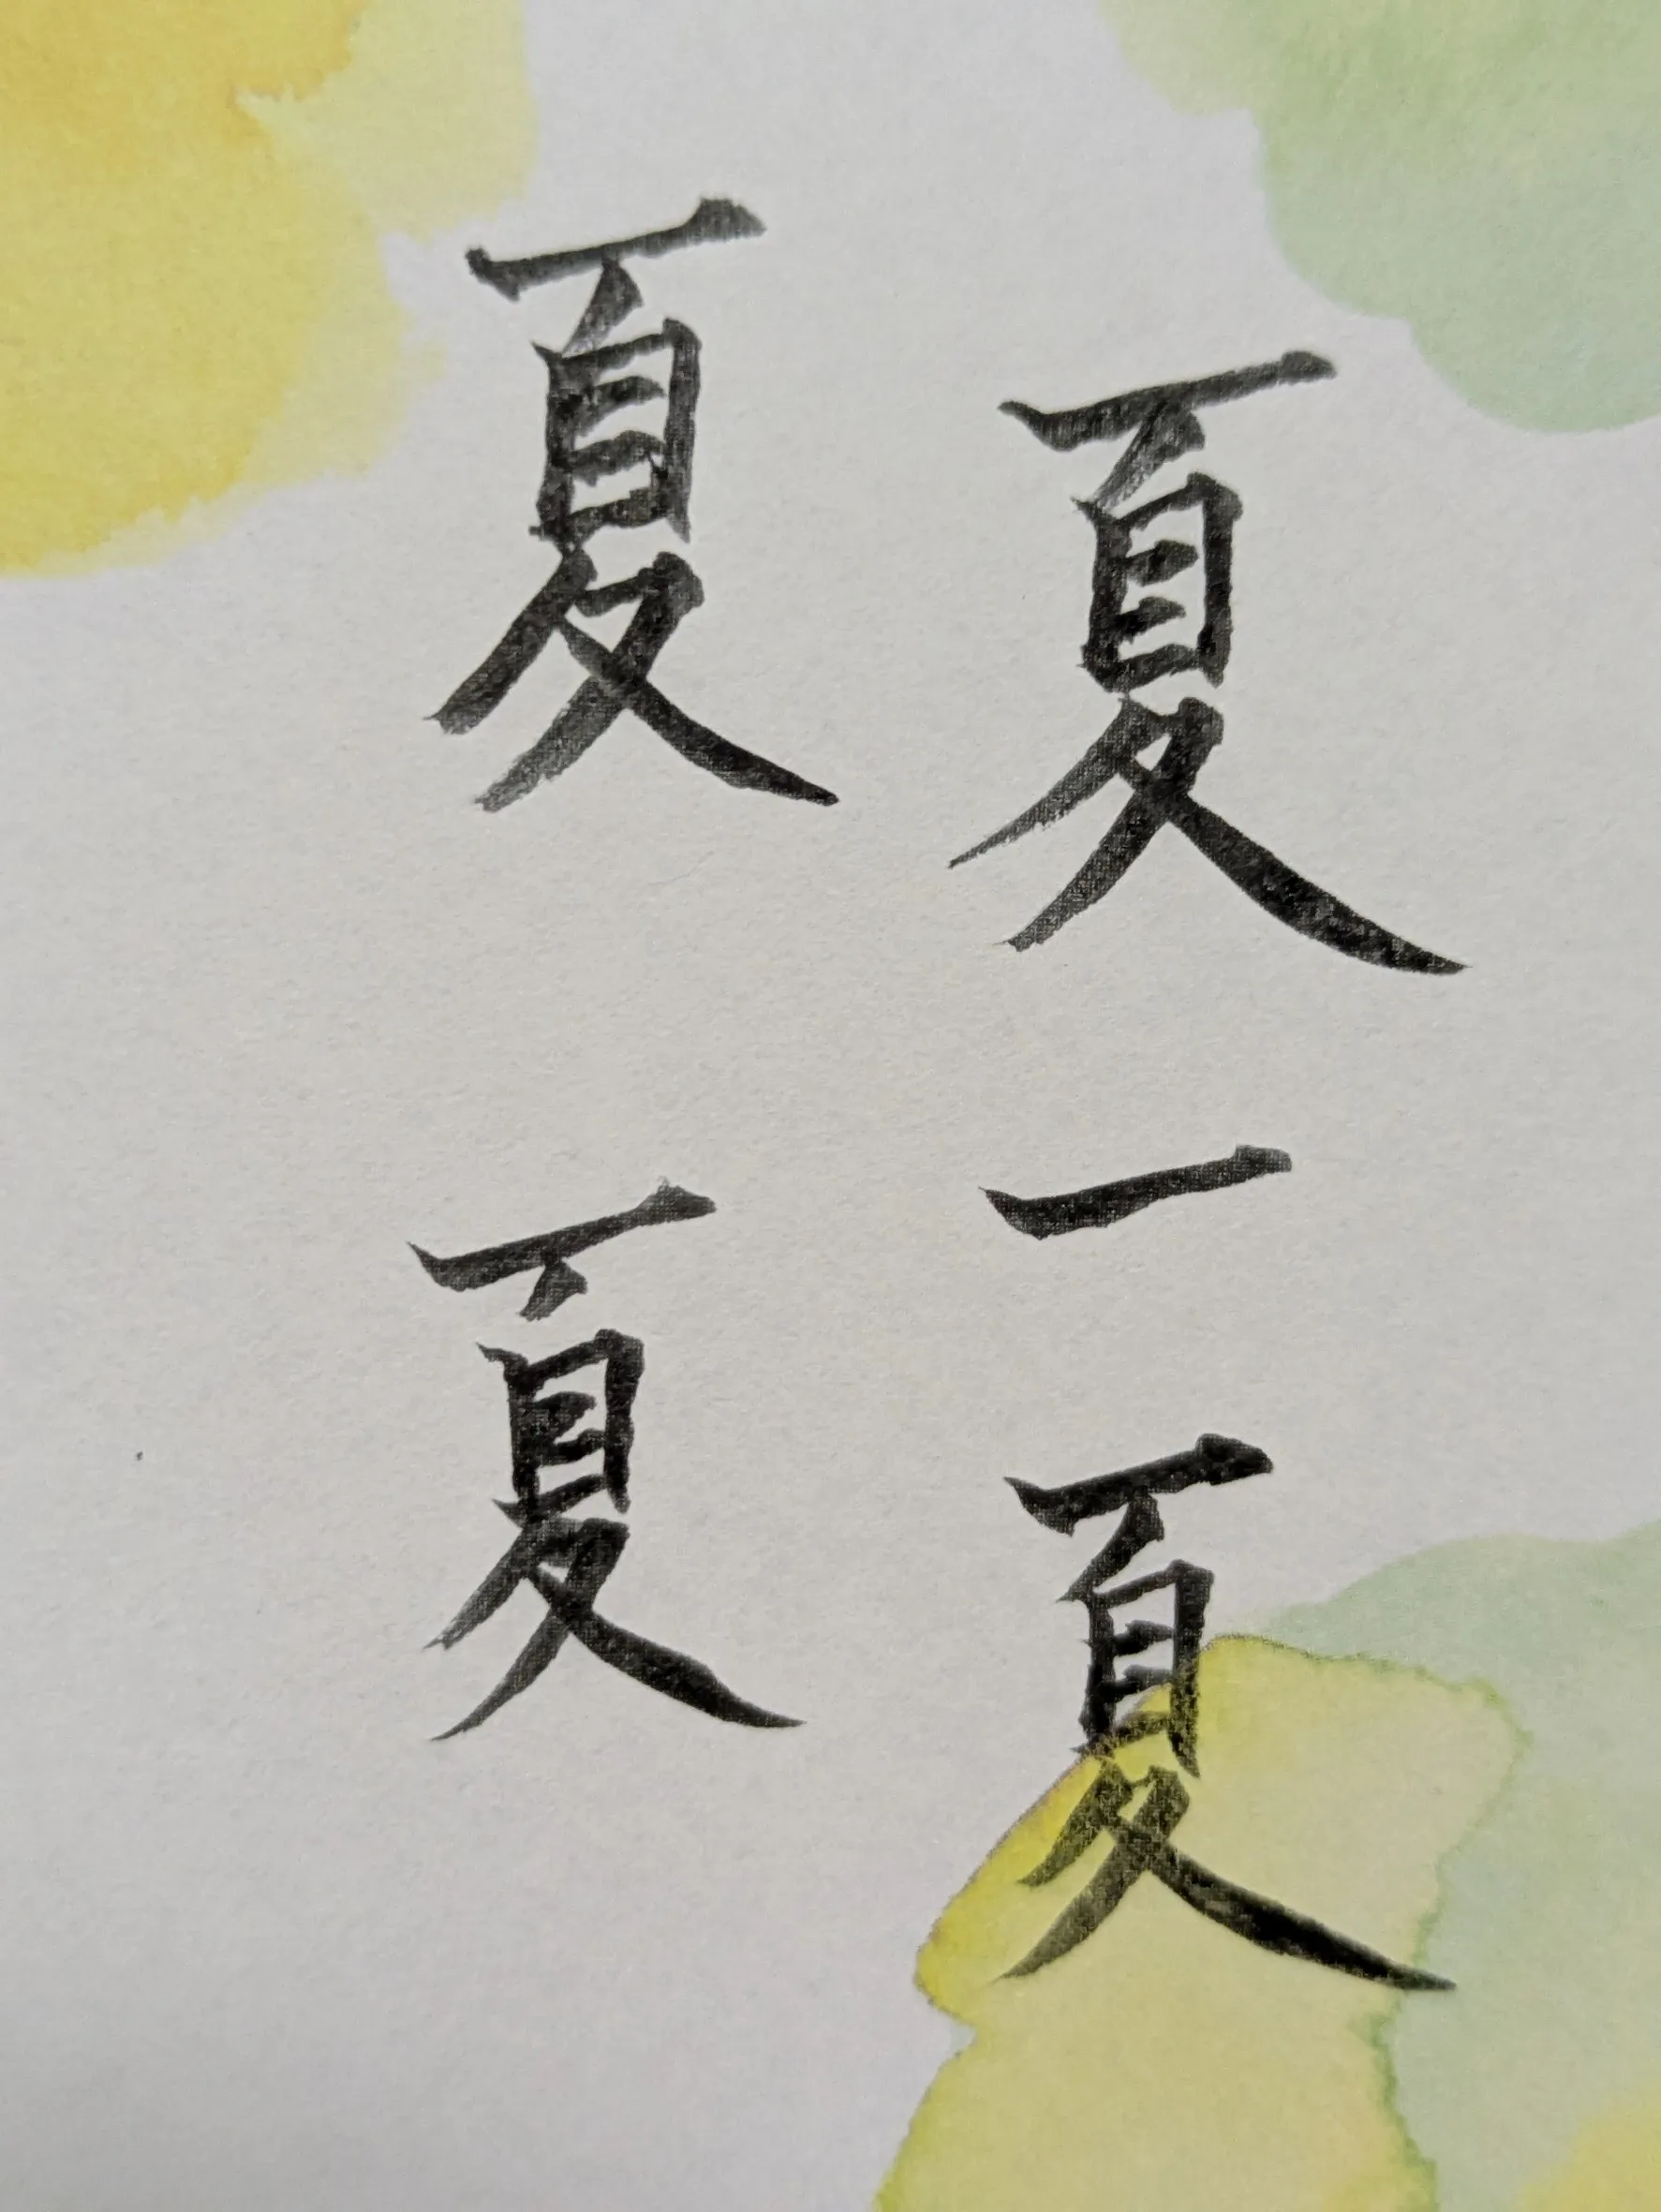 夏一夏
夏夏